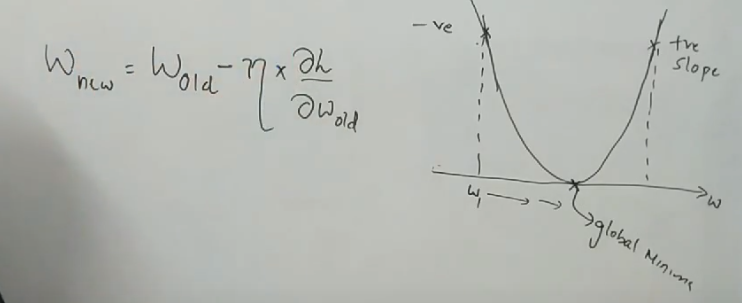 W_new = W_old - η × ∂L / ∂w_old
-ve
+ve
slope
w₁ → →
w
global Minima